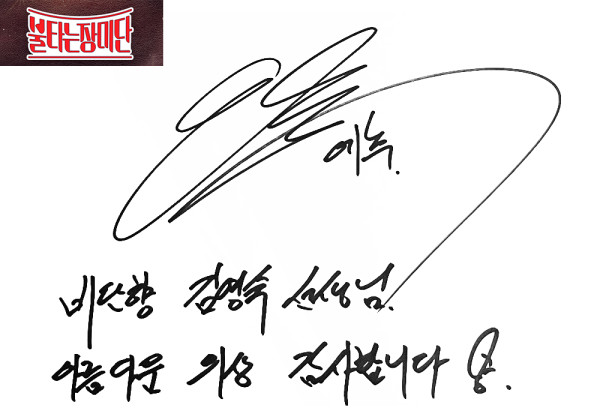 불타는장미단
에녹.
비단향 김영숙 선생님.
아름다운 의상 감사합니다